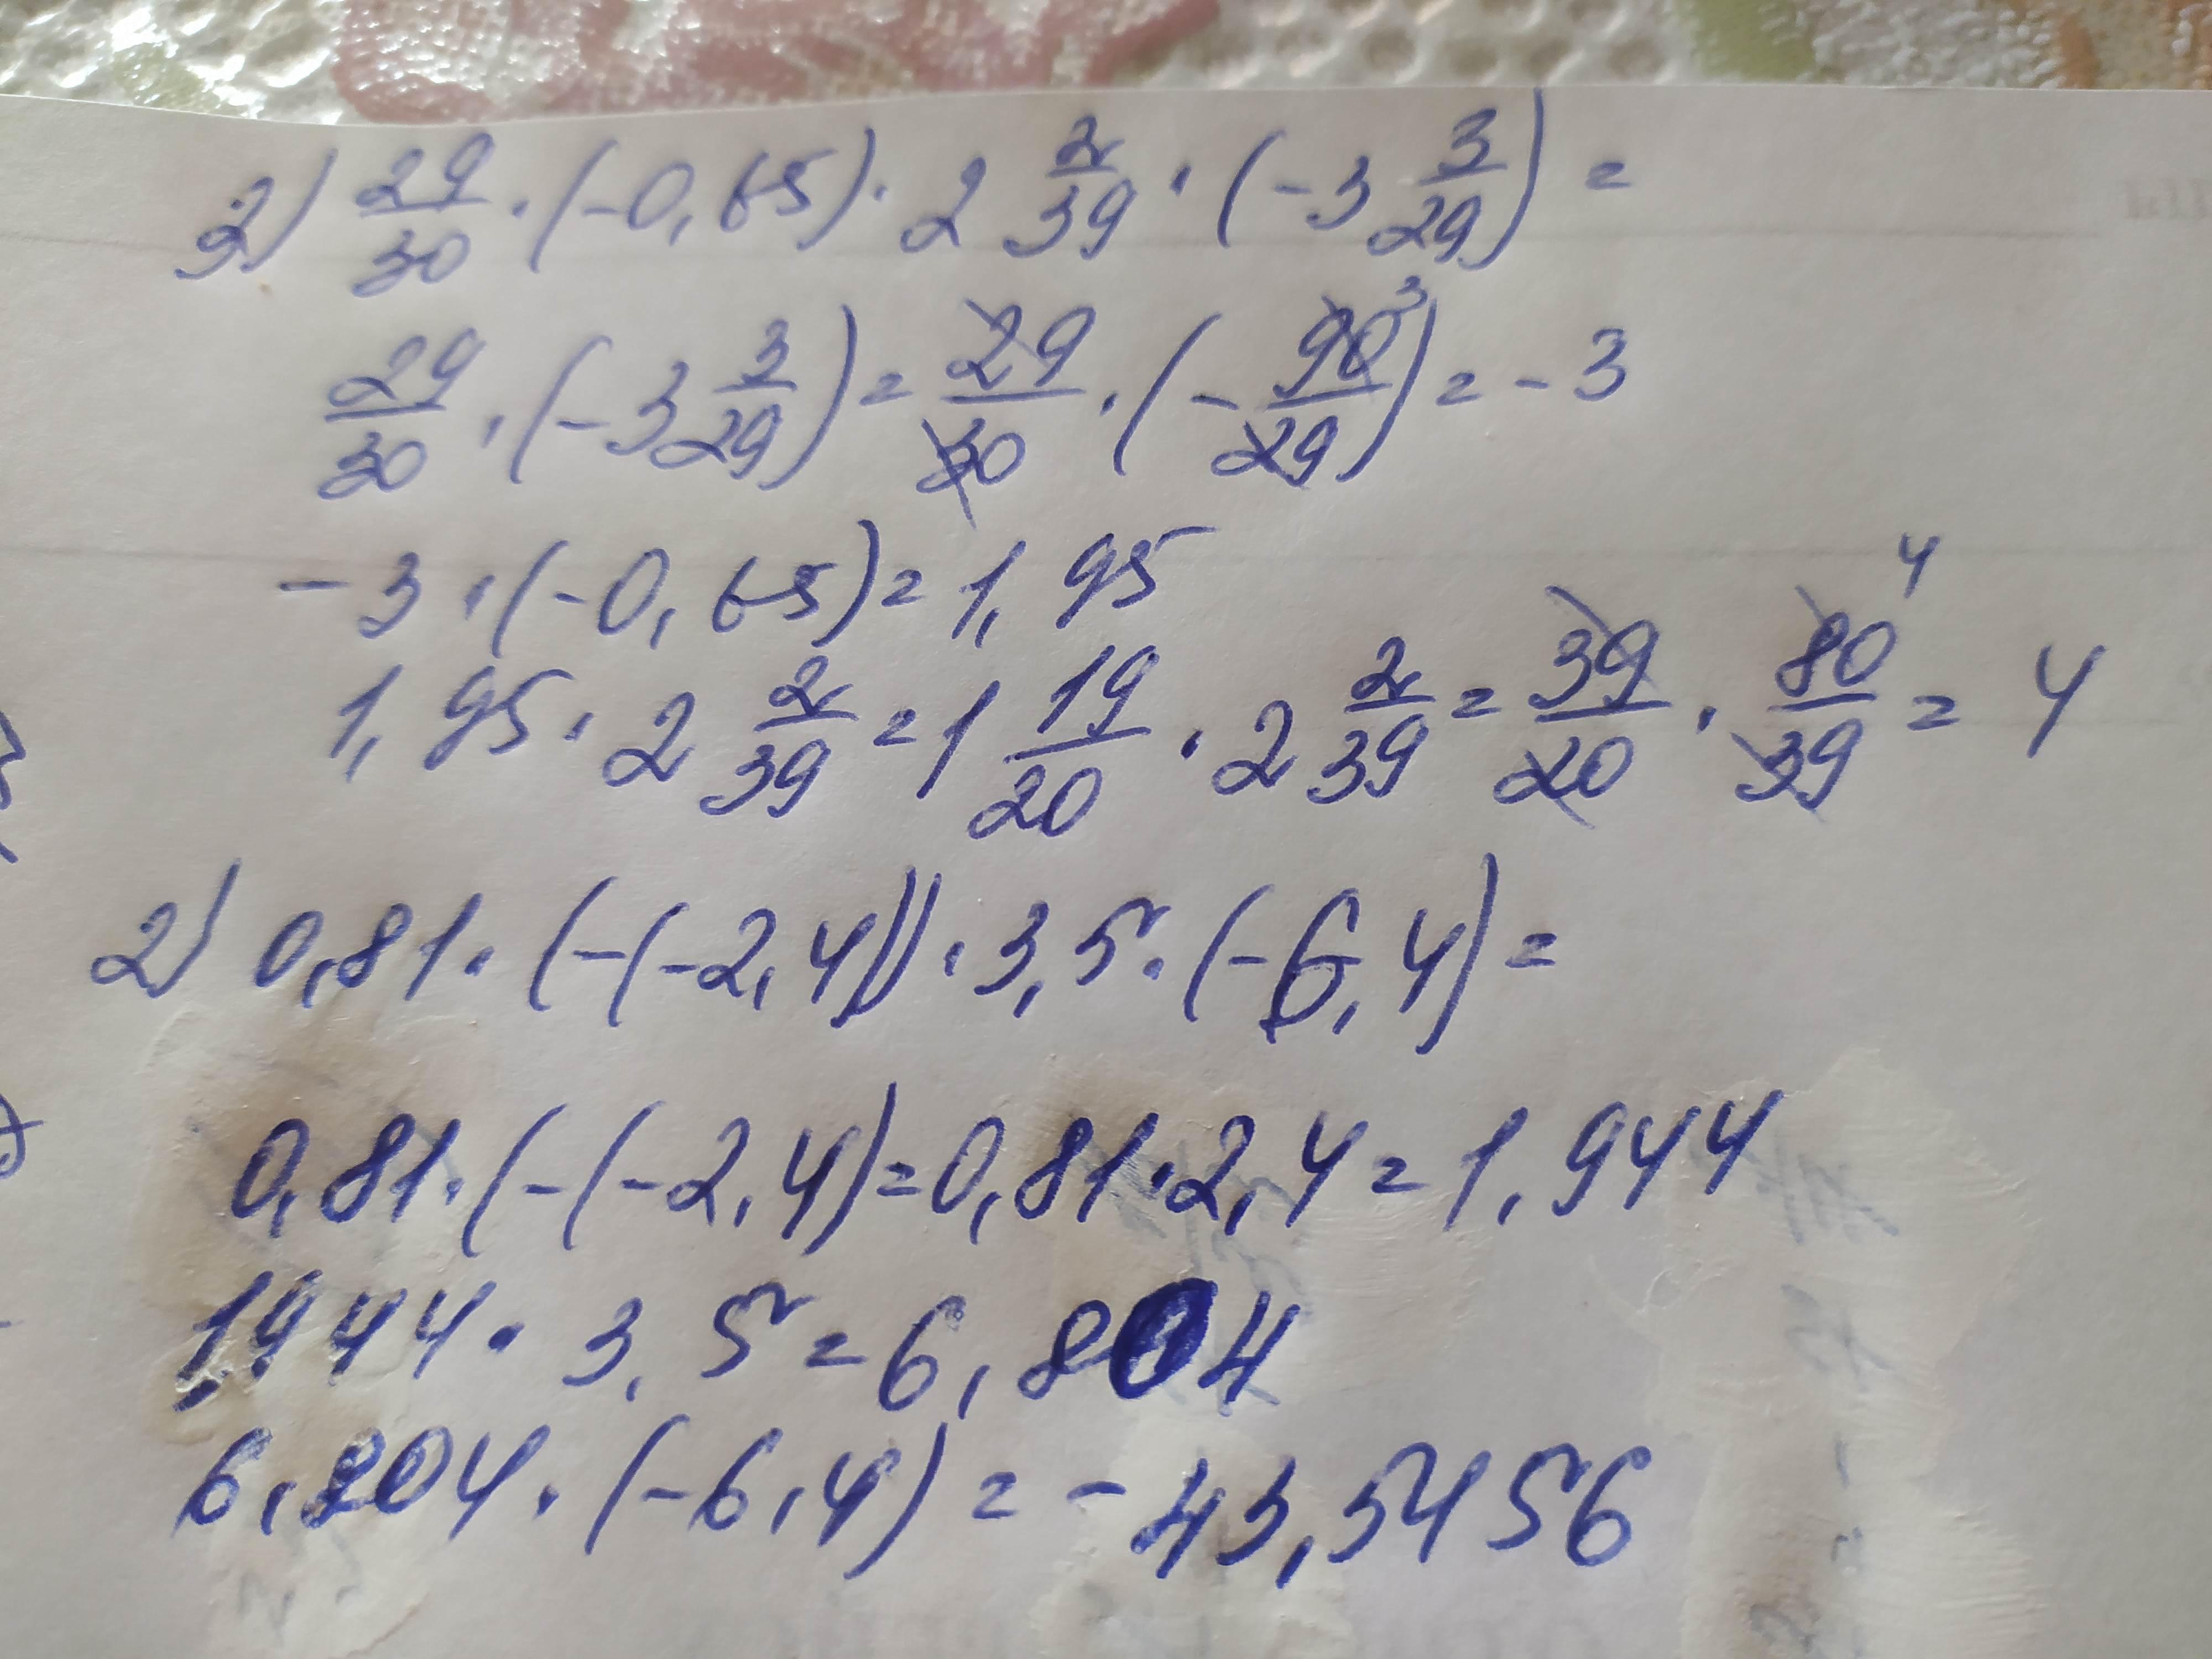 2) 29/30 · (-0,65) · 2 2/39 · (-3 3/29) =
29/30 · (-3 3/29) = 29/30 · (-90/29)³ = -3
-3 · (-0,65) = 1,95
1,95 · 2 2/39 = 1 19/20 · 2 2/39 = 39/20 · 80/39 ⁴ = 4
2) 0,81 · (-(-2,4)) · 3,5 · (-6,4) =
0,81 · (-(-2,4) = 0,81 · 2,4 = 1,944
1,944 · 3,5 = 6,804
6,804 · (-6,4) = -43,5456